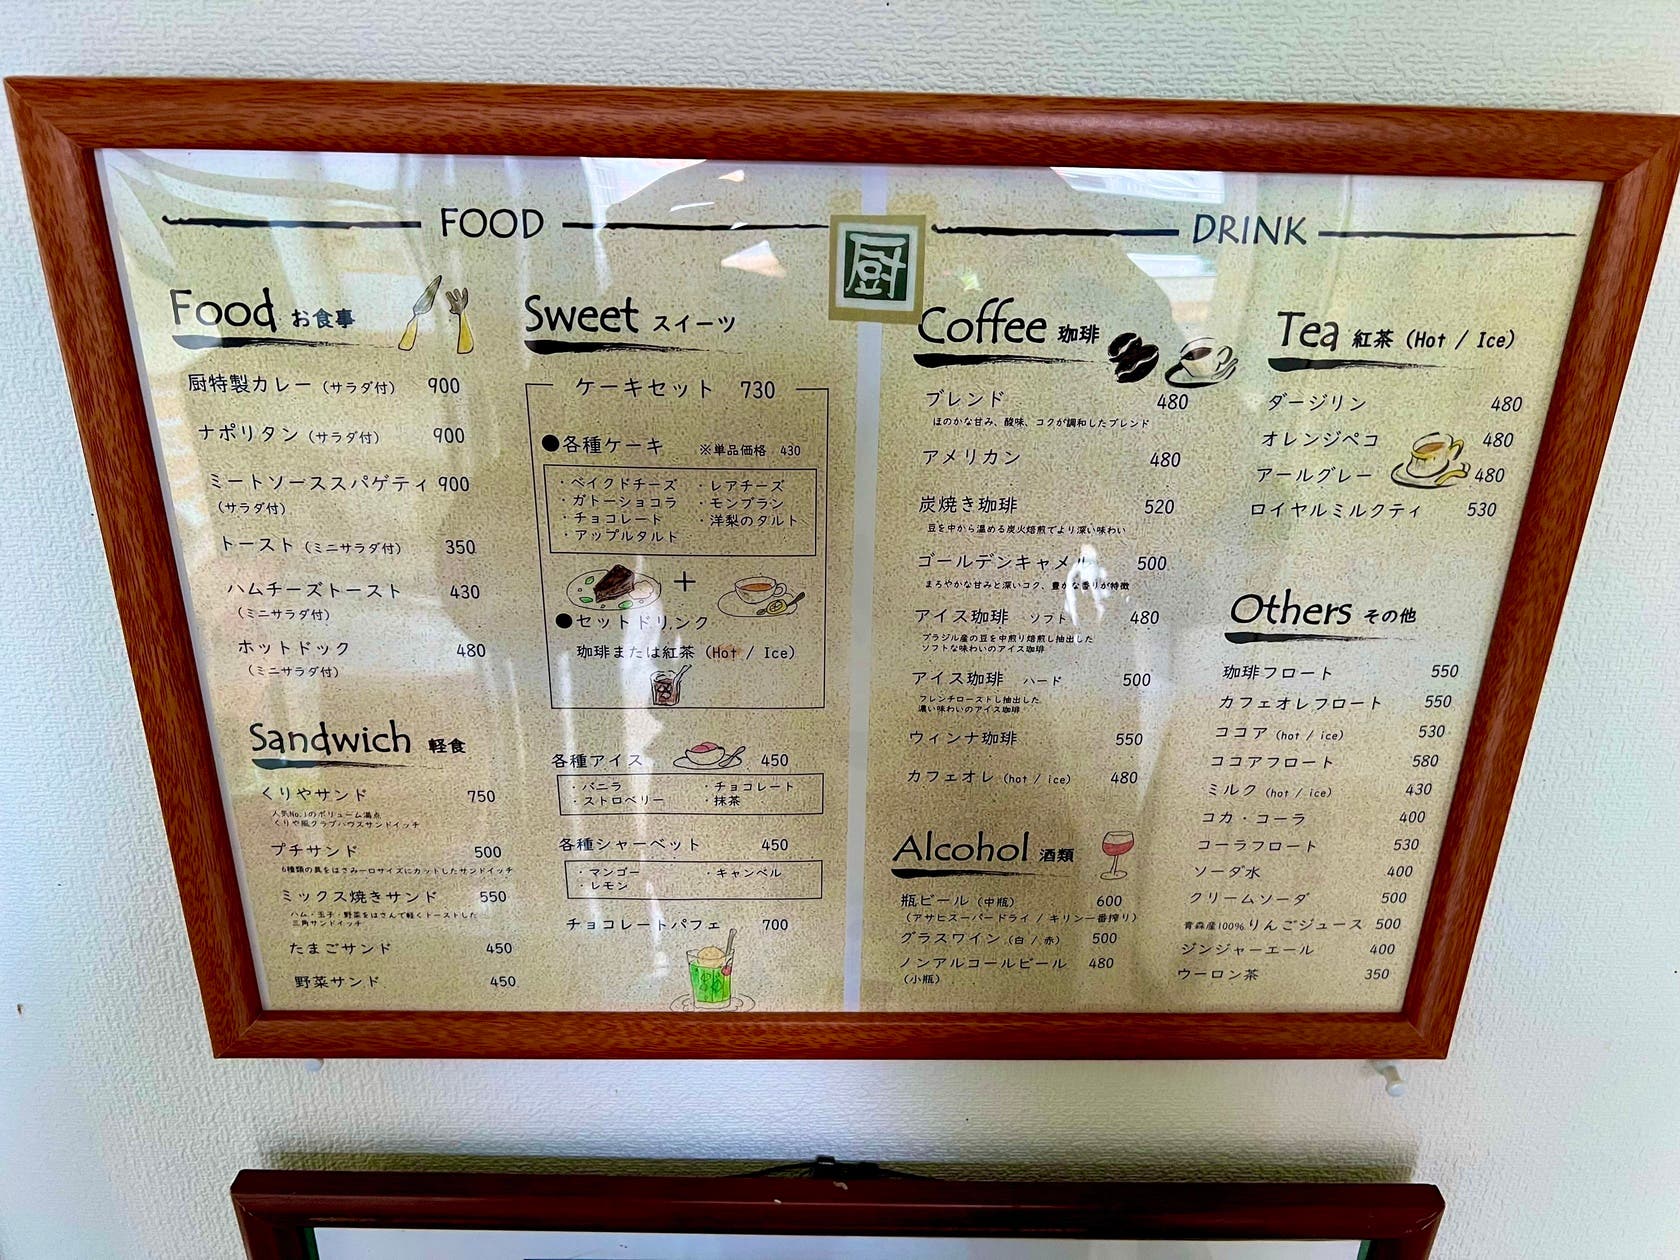 FOOD
Food お食事
厨特製カレー（サラダ付） 900
ナポリタン（サラダ付） 900
ミートソーススパゲティ 900
（サラダ付）
トースト（ミニサラダ付） 350
ハムチーズトースト 430
（ミニサラダ付）
ホットドック 480
（ミニサラダ付）
Sandwich 軽食
くりやサンド 750
人気No.1のボリューム満点
くりや風クラブハウスサンドイッチ
プチサンド 500
6種類の具をはさみ一口サイズにカットしたサンドイッチ
ミックス焼きサンド 550
ハム・玉子・野菜をはさんで軽くトーストした
三角サンドイッチ
たまごサンド 450
野菜サンド 450
Sweet スイーツ
ケーキセット 730
●各種ケーキ ※単品価格 430
・ベイクドチーズ ・レアチーズ
・ガトーショコラ ・モンブラン
・チョコレート ・洋梨のタルト
・アップルタルト
+
●セットドリンク
珈琲または紅茶（Hot / Ice）
各種アイス 450
・バニラ ・チョコレート
・ストロベリー ・抹茶
各種シャーベット 450
・マンゴー ・キャンベル
・レモン
チョコレートパフェ 700
厨
DRINK
Coffee 珈琲
ブレンド 480
ほのかな甘み、酸味、コクが調和したブレンド
アメリカン 480
炭焼き珈琲 520
豆を中から温める炭火焙煎でより深い味わい
ゴールデンキャメル 500
まろやかな甘みと深いコク、豊かな香りが特徴
アイス珈琲 ソフト 480
ブラジル産の豆を中煎り焙煎し抽出した
ソフトな味わいのアイス珈琲
アイス珈琲 ハード 500
フレンチローストし抽出した
濃い味わいのアイス珈琲
ウィンナ珈琲 550
カフェオレ（hot / ice） 480
Alcohol 酒類
瓶ビール（中瓶） 600
（アサヒスーパードライ / キリン一番搾り）
グラスワイン（白 / 赤） 500
ノンアルコールビール 480
（小瓶）
Tea 紅茶（Hot / Ice）
ダージリン 480
オレンジペコ 480
アールグレー 480
ロイヤルミルクティ 530
Others その他
珈琲フロート 550
カフェオレフロート 550
ココア（hot / ice） 530
ココアフロート 580
ミルク（hot / ice） 430
コカ・コーラ 400
コーラフロート 530
ソーダ水 400
クリームソーダ 500
青森産100%りんごジュース 500
ジンジャーエール 400
ウーロン茶 350